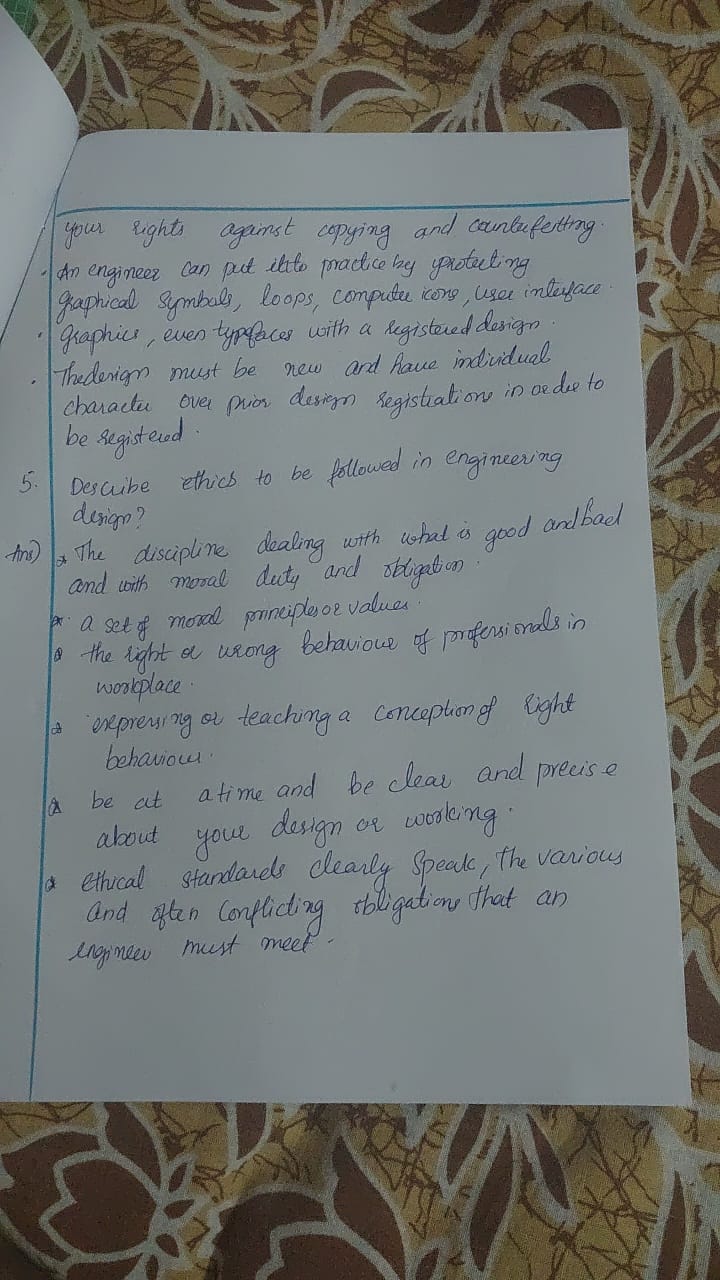 your rights against copying and counterfeitting.
. An engineer can put it to practice by protecting
graphical symbols, loops, computer icons, user interface.
. graphics, even typefaces with a registered design.
. The design must be new and have individual
character over prior design registrations in order to
be registered.
5. Describe ethics to be followed in engineering
design?
Ans) * The discipline dealing with what is good and bad
and with moral duty and obligation.
* a set of moral principles or values.
* the right or wrong behaviour of professionals in
workplace.
* expressing or teaching a conception of right
behaviour.
* be at a time and be clear and precise
about your design or working.
* ethical standards clearly speak, the various
and often conflicting obligations that an
engineer must meet.